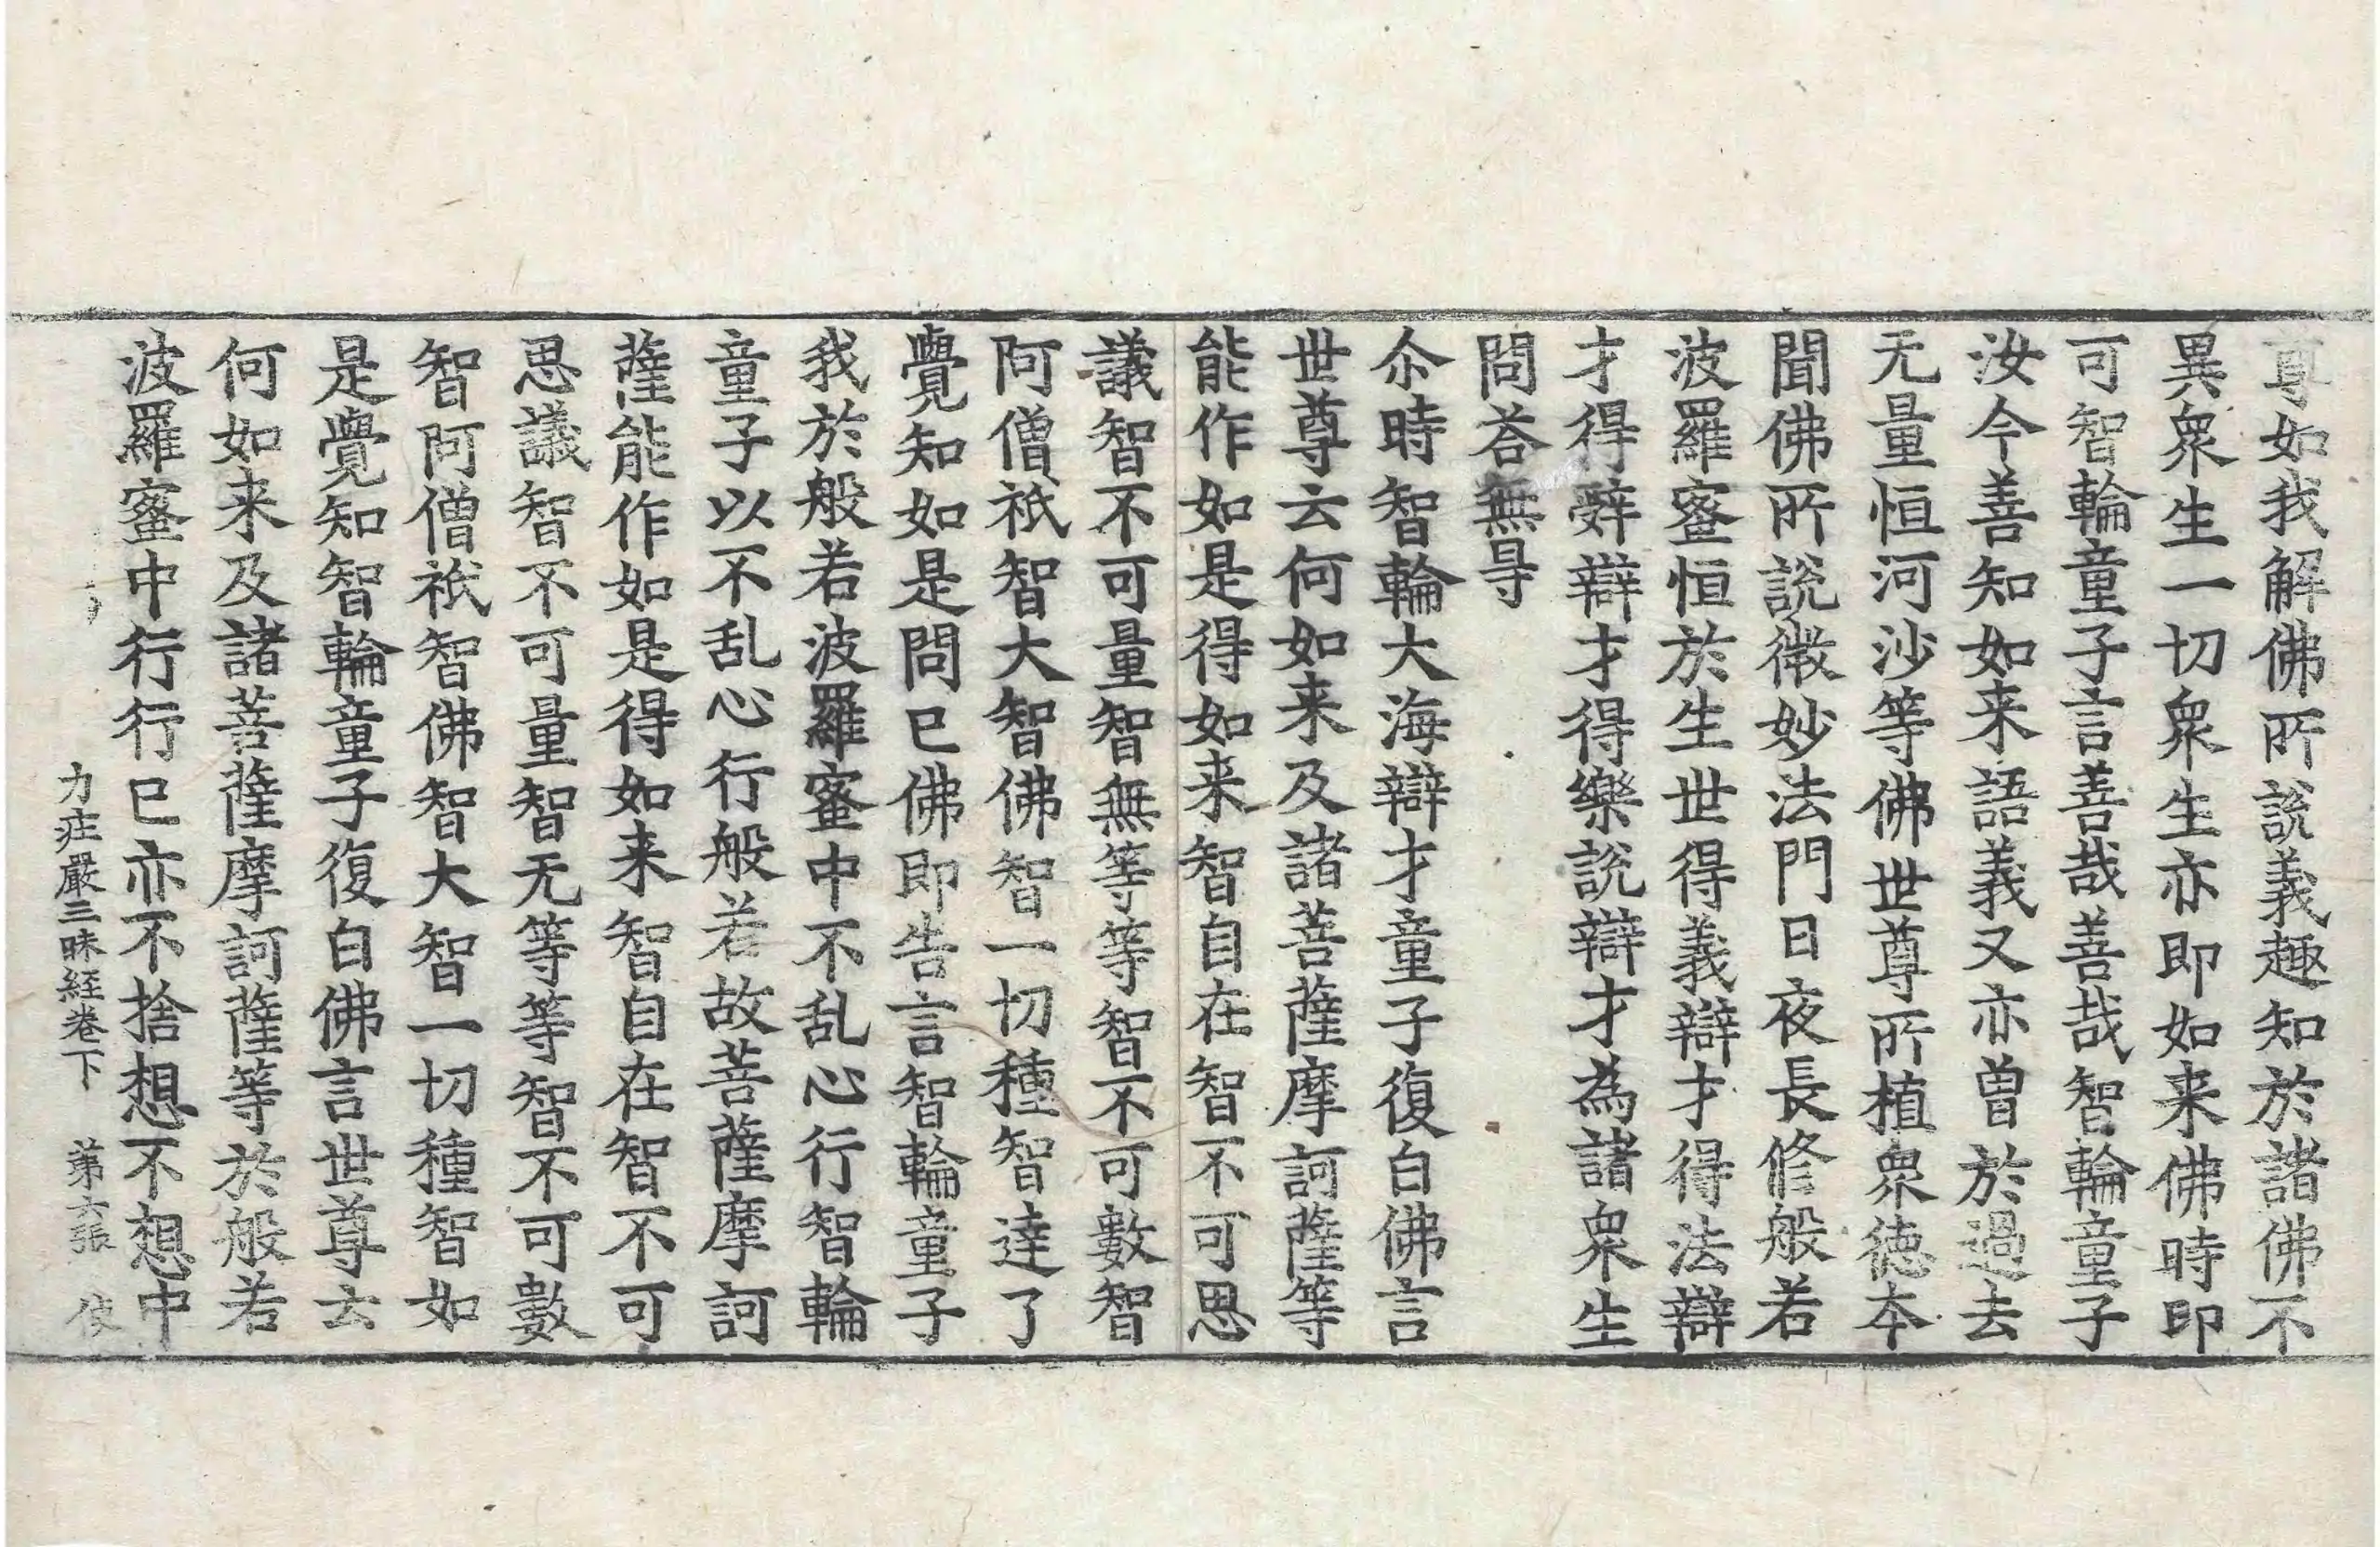 尊如我解佛所說義趣知於諸佛不
異衆生一切衆生亦即如来佛時即
可智輪童子言善哉善哉智輪童子
汝今善知如来語義又亦曾於過去
无量恒河沙等佛世尊所植衆徳本
聞佛所說微妙法門日夜長修般若
波羅蜜恒於生世得義辯才得法辯
才得辤辯才得樂說辯才為諸衆生
問荅無㝵
尒時智輪大海辯才童子復白佛言
世尊云何如来及諸菩薩摩訶薩等
能作如是得如来智自在智不可思
議智不可量智無等等智不可數智
阿僧祇智大智佛智一切種智達了
覺知如是問已佛即告言智輪童子
我於般若波羅蜜中不乱心行智輪
童子以不乱心行般若故菩薩摩訶
薩能作如是得如来智自在智不可
思議智不可量智无等等智不可數
智阿僧祇智佛智大智一切種智如
是覺知智輪童子復白佛言世尊云
何如来及諸菩薩摩訶薩等於般若
波羅蜜中行行已亦不捨想不想中
力莊嚴三昧経卷下 苐六張 使